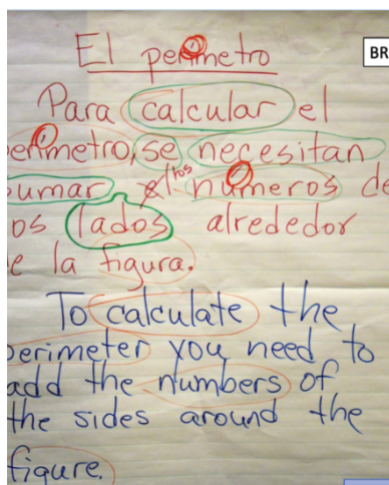 El perímetro
BR
Para calcular el
erímetro, se necesitan
sumar los números de
os lados alrededor
e la figura.
To calculate the
perimeter you need to
add the numbers of
the sides around the
figure.